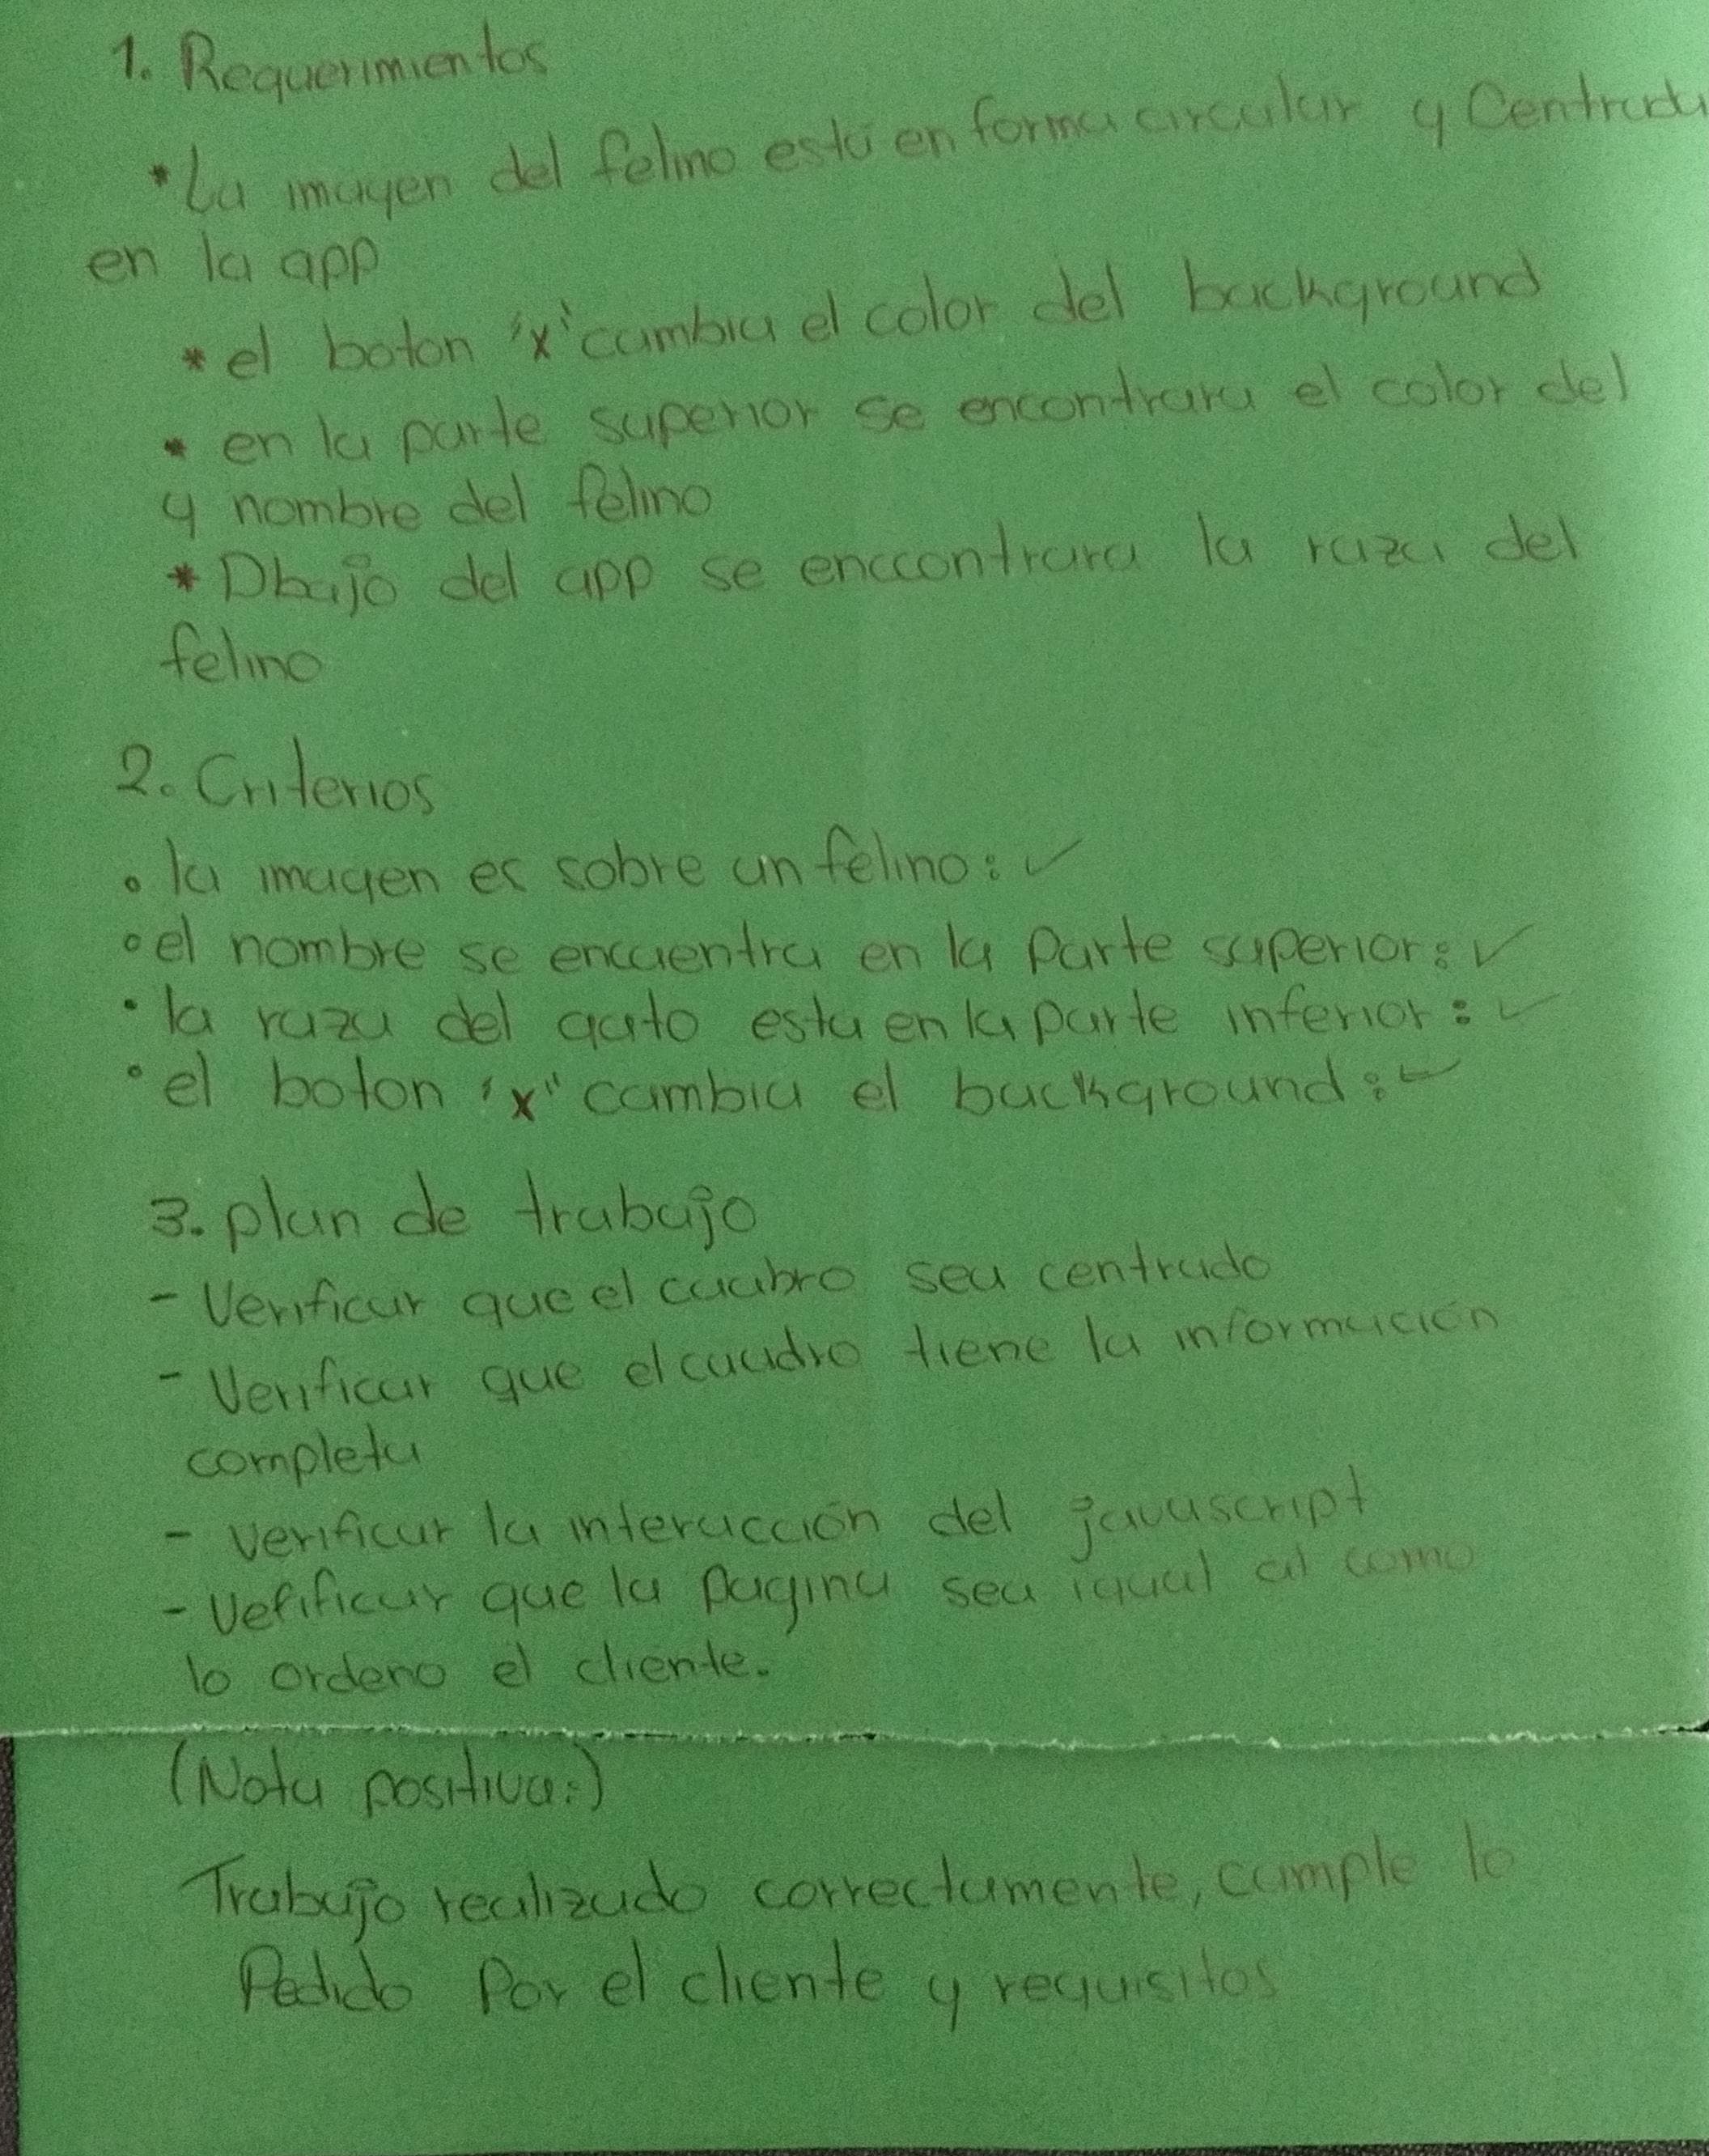 1. Requerimientos
* La imagen del felino está en forma circular y Centrada
en la app
* el boton "x" cambia el color del background
* en la parte superior se encontrara el color del
y nombre del felino
* Dbajo del app se enccontrara la raza del
felino
2. Criterios
• la imagen es sobre un felino: ✓
• el nombre se encuentra en la Parte superior: ✓
• la raza del gato esta en la parte inferior: ✓
• el boton "x" cambia el background: ✓
3. plan de trabajo
- Verificar que el cuabro sea centrado
- Verificar que el cuadro tiene la información
completa
- verificar la interacción del javascript
- Verificar que la pagina sea igual al como
lo ordeno el cliente.
(Nota positiva:)
Trabajo realizado correctamente, cumple lo
Pedido Por el cliente y requisitos